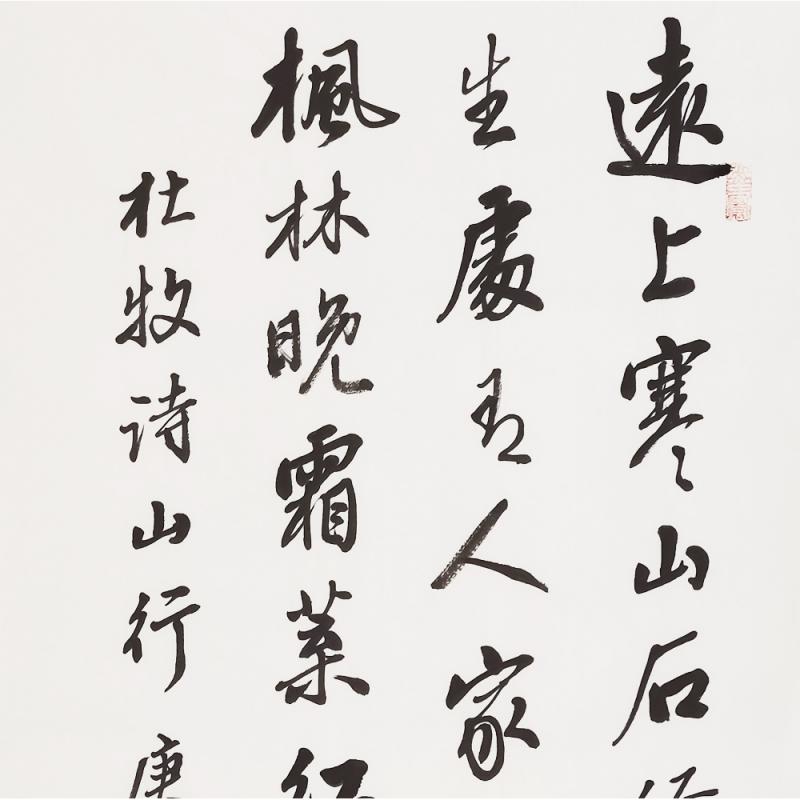 遠上寒山石
生處有人家
楓林晚霜葉红
杜牧诗山行庚